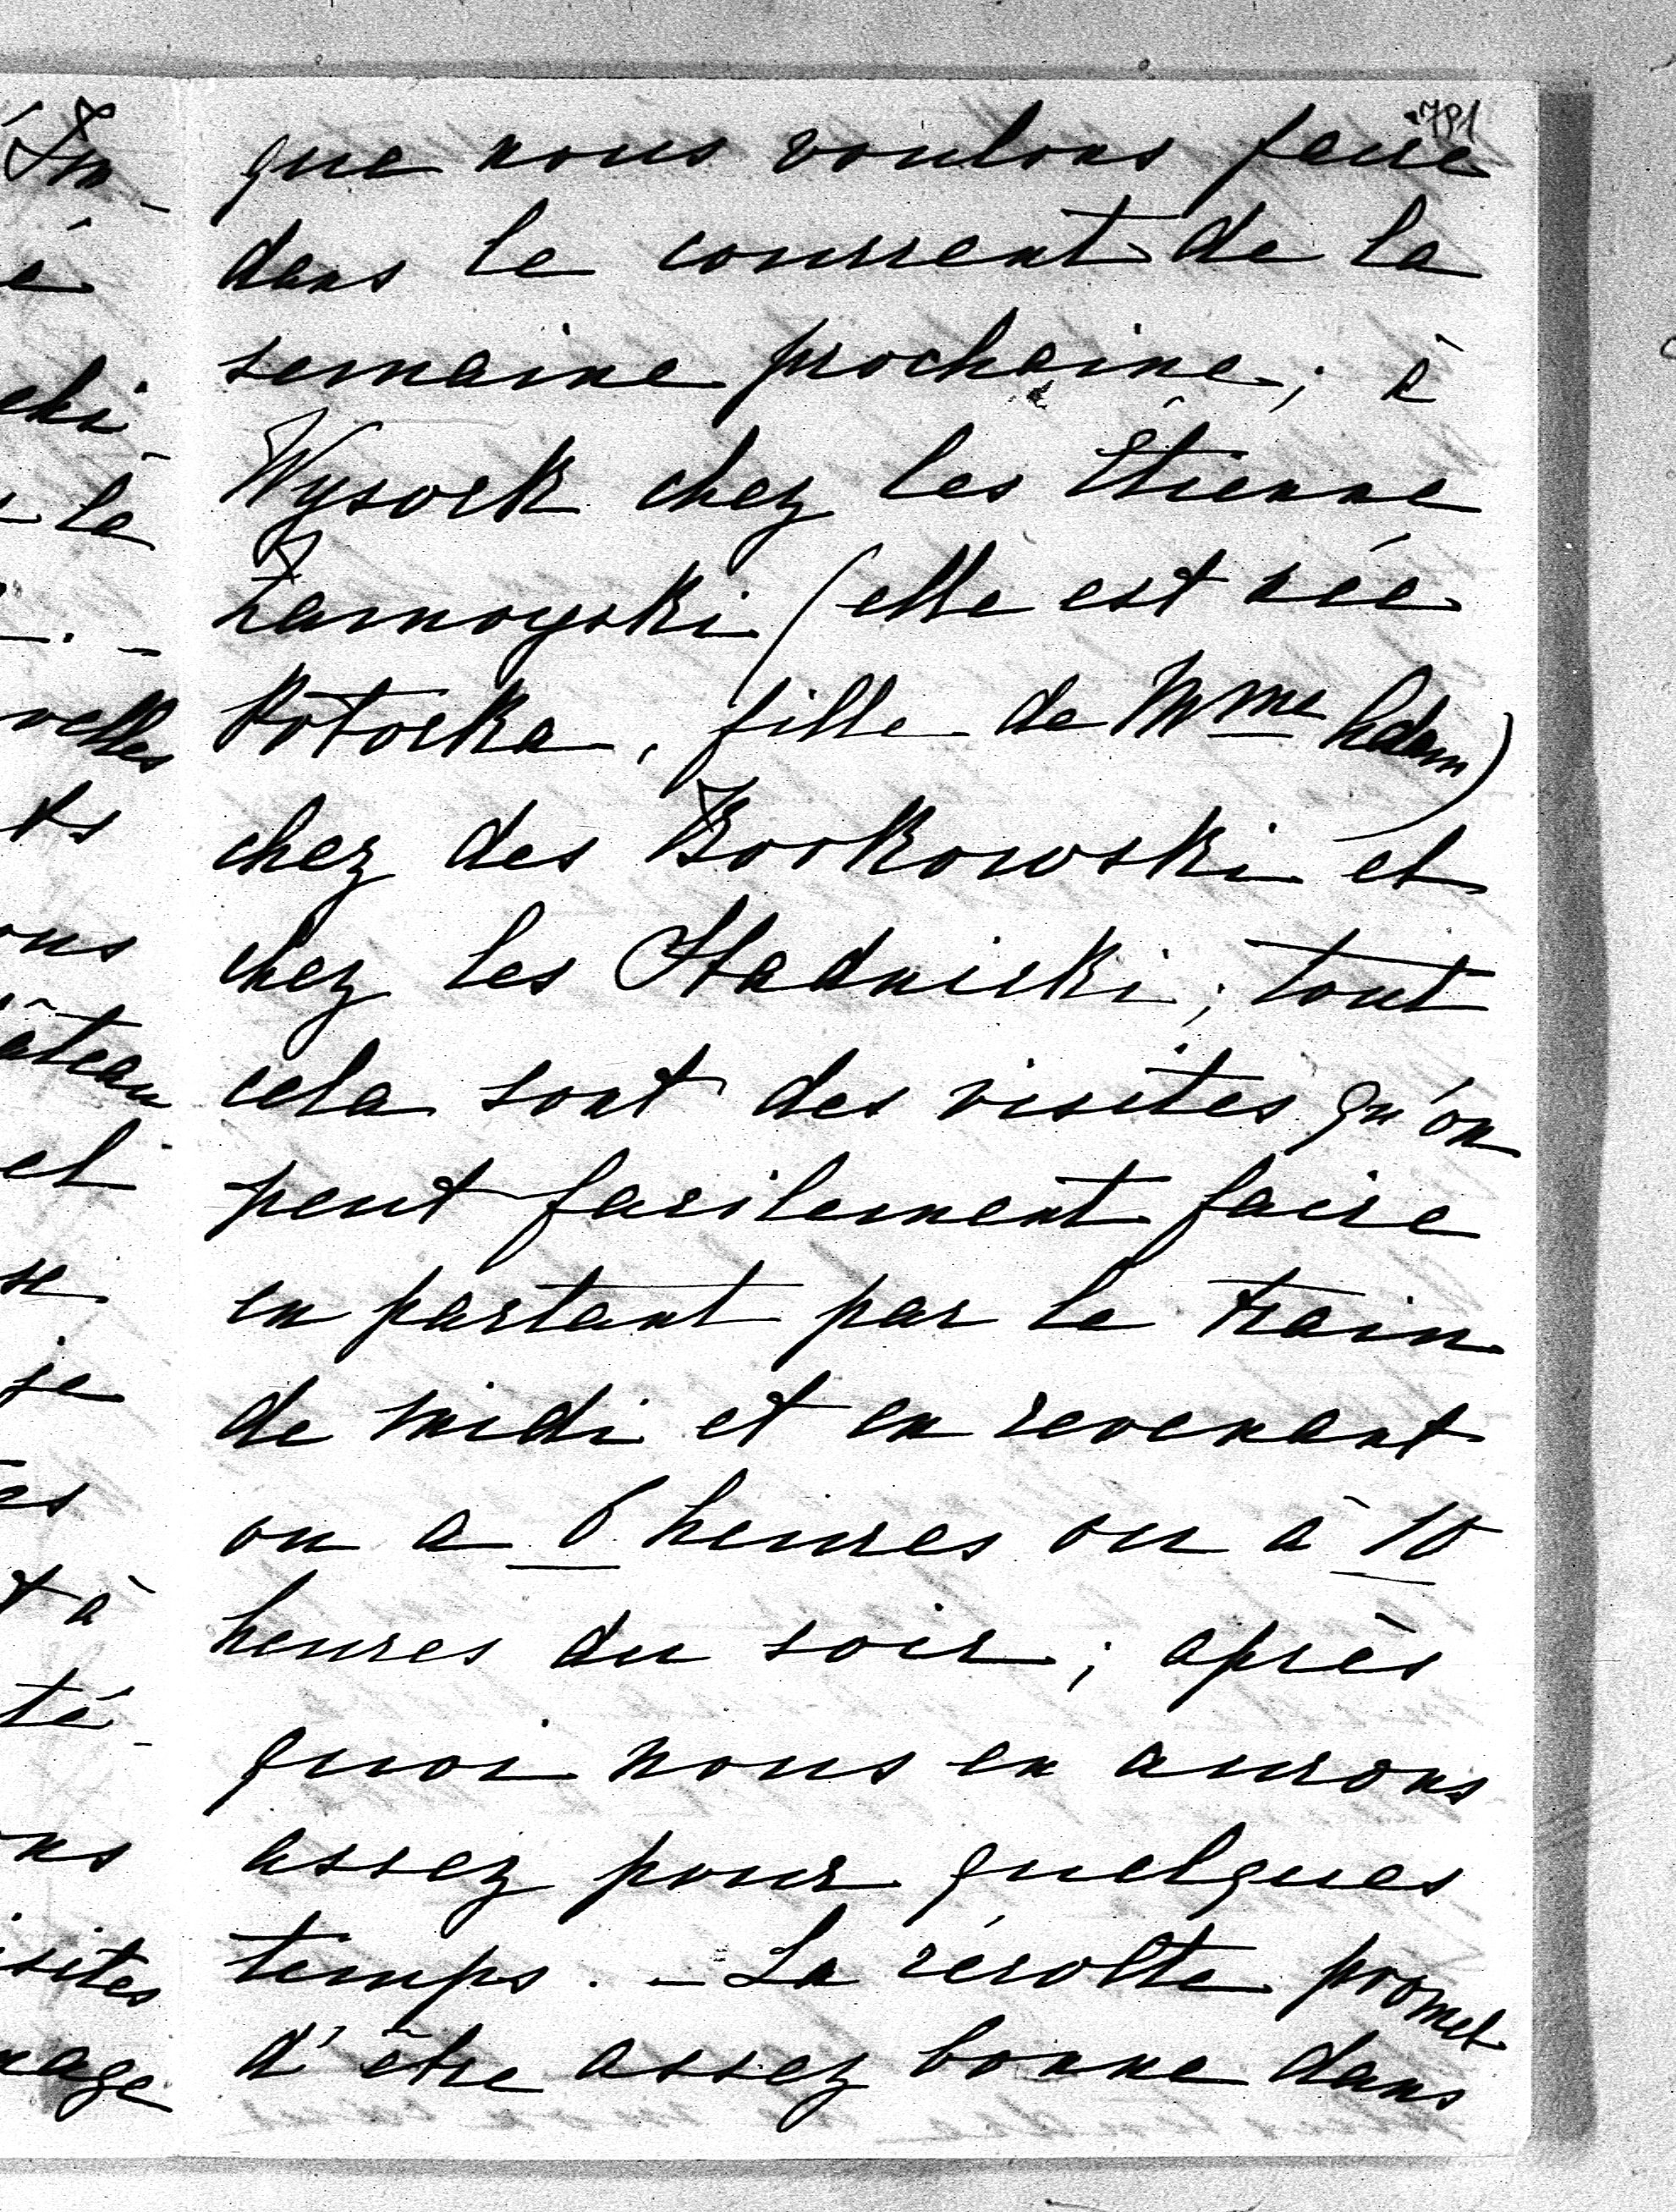 791
que nous voulons faire
dans le courrent de la
semaine prochaine; à
Wysock chez les Étienne
Zamoyski (elle est née
Potocka, fille de Mme Adam)
chez des Borkowski et
chez les Stadnicki; tout
cela sont des visites qu'on
peut facilement faire
en partant par le train
de midi et en revenant
ou a 6 heures ou à 10
heures du soir; après
quoi nous en aurons
assez pour quelques
temps. - La récolte promet
d'être assez bonne dans